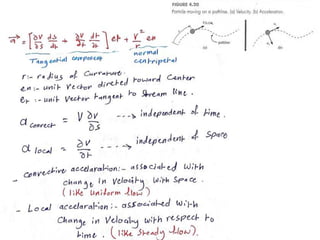 FIGURE 4.30
Particle moving on a pathline. (a) Velocity, (b) Acceleration.
a = [ ∂V/∂S ds/dt + ∂V/∂t dt/dt ] et + V²/r en
Tangential component
normal
centripetal
pathline
(a) (b)
r :- radius of Curvature.
en :- unit Vector directed toward Center
et :- unit Vector tangent to Stream line.
a convect = V ∂V/∂S ---> independent of time.
a local = ∂V/∂t ----> independent of space
- Convective acceleration :- associated with
change in Velocity with space.
(like Uniform flow)
- Local acceleration :- associated with
Change in Velocity with respect to
time. (like steady flow).